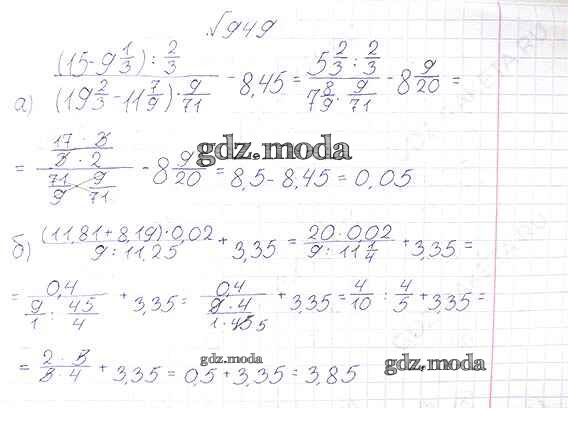 №949
а) ((15-9 1/3) : 2/3) / ((19 2/3 - 11 7/9) · 9/71) - 8,45 = (5 2/3 : 2/3) / (7 8/9 · 9/71) - 8 9/20 =
= ((17 · 3)/(3 · 2)) / (71/9 · 9/71) - 8 9/20 = 8,5 - 8,45 = 0,05
gdz.moda
б) ((11,81 + 8,19) · 0,02) / (9 : 11,25) + 3,35 = (20 · 0,02) / (9 : 11 1/4) + 3,35 =
= 0,4 / (9/1 : 45/4) + 3,35 = 0,4 / ((9 · 4)/(1 · 45 5)) + 3,35 = 4/10 : 4/5 + 3,35 =
= (2 · 5)/(5 · 4) + 3,35 = 0,5 + 3,35 = 3,85
gdz.moda
gdz.moda